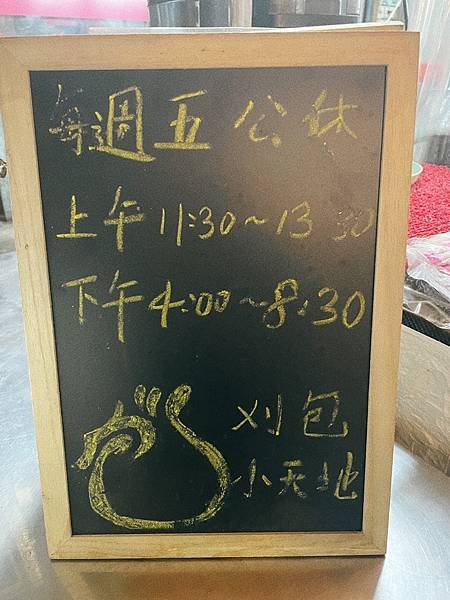 每週五公休
上午11:30~13:30
下午4:00~8:30
刈包
小天地